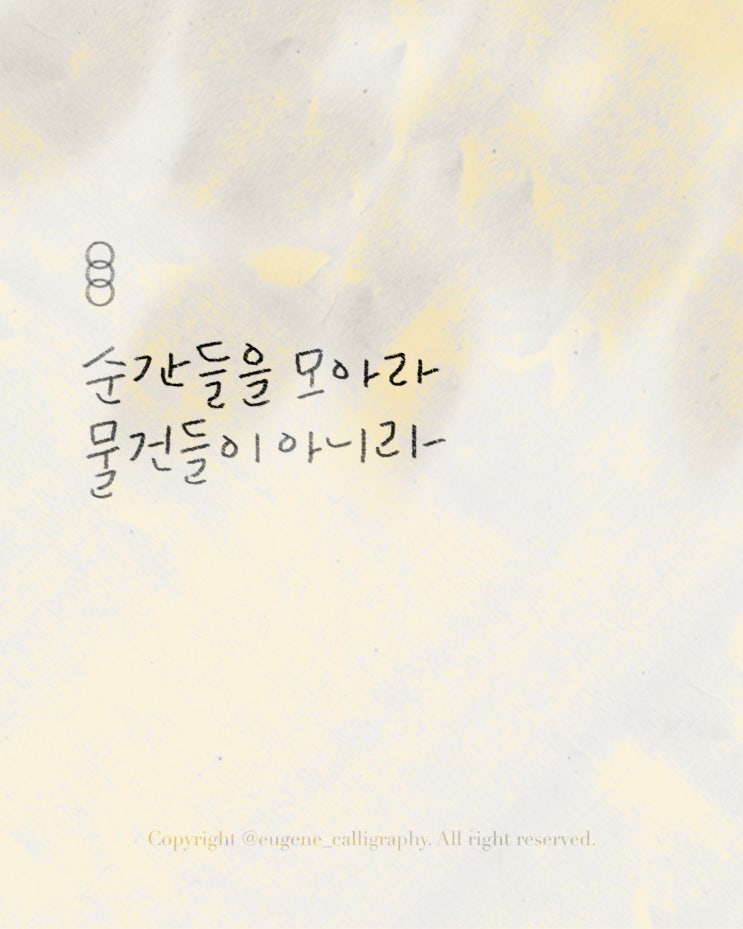 순간들을 모아라
물건들이 아니라
Copyright @eugene_calligraphy. All right reserved.